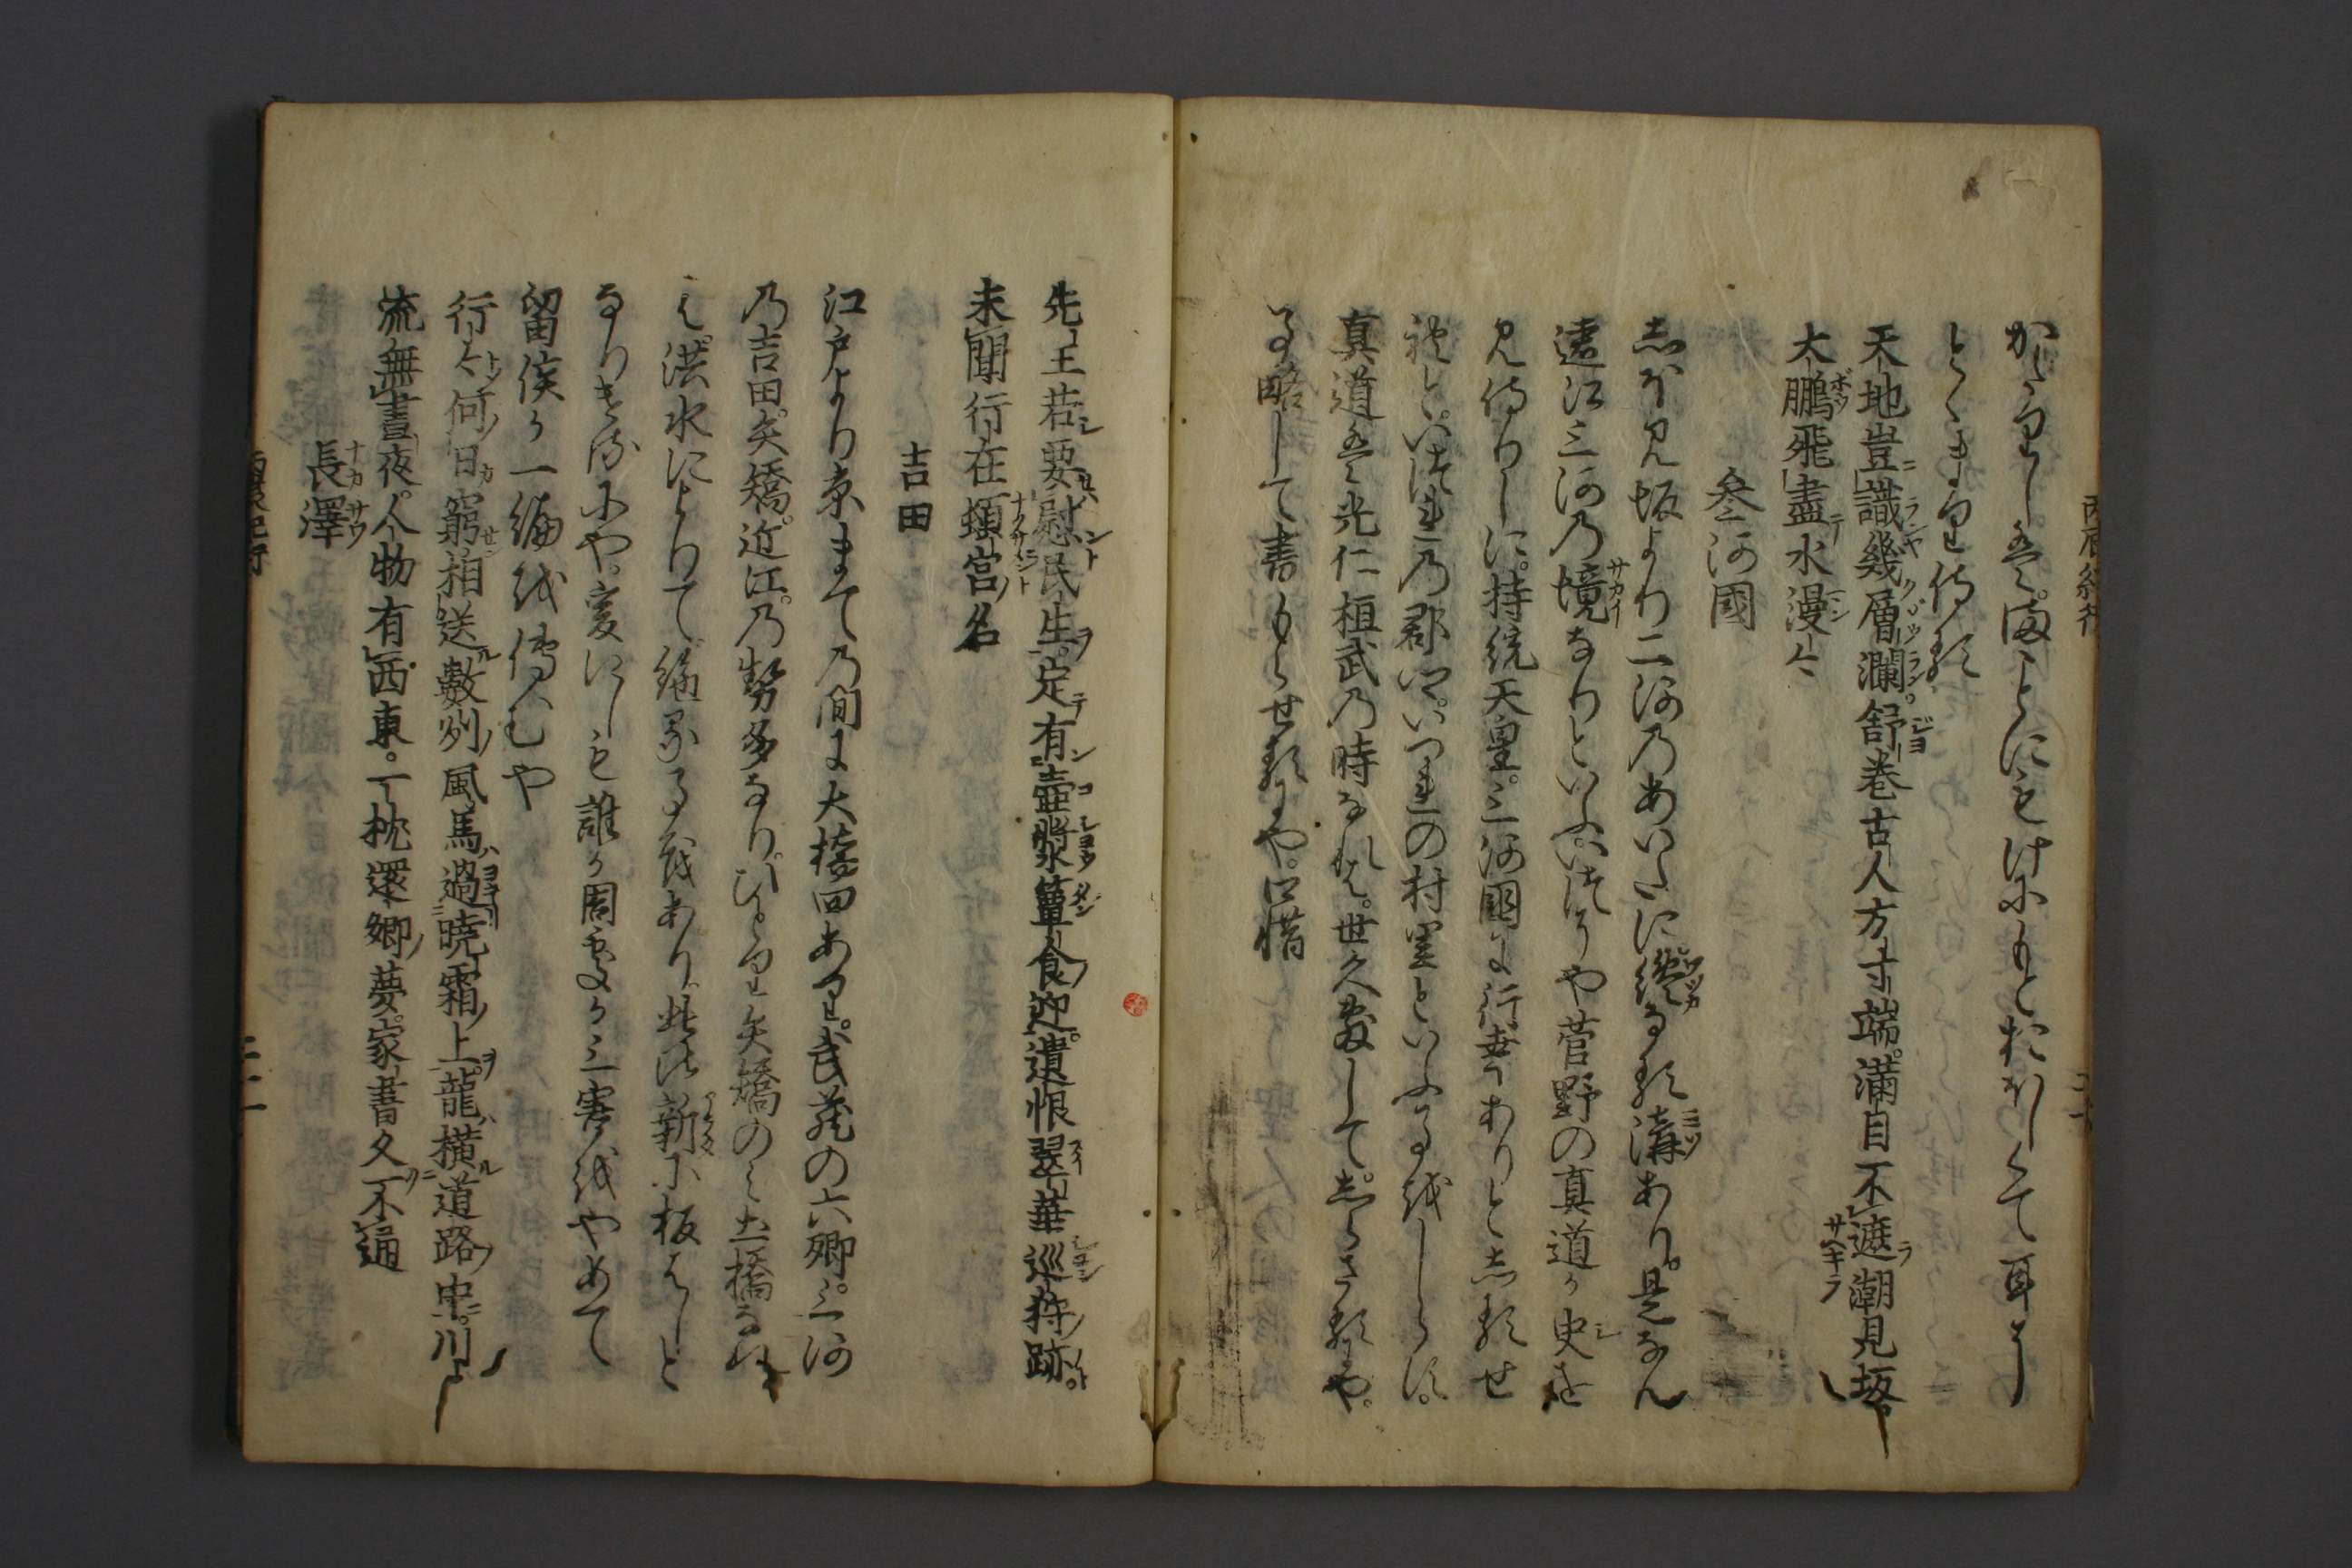 かへりしを。海ことにもけにもとおほしくて耳にし
とゝまり侍る
天地豈識幾層瀾。舒巻古人方寸端。満目不遮潮見坂
大鵬飛盡水漫々
叄河國
志ほ見坂より二河乃あいたに纔なる溝あり。是なん
遠江三河乃境なりといふ。いつそや菅野の真道か史を
見侍りしに。持統天皇。三河國に行幸ありと志るせ
れと。いつれ乃郡。いつれの村里といふ事越しらす。
真道は光仁桓武乃時なれは。世久敷して。志らさるや。
事略して書もらせるにや。口惜
先王若要慰民生。定有壺漿簞食迎。遺恨翠華巡狩跡。
未聞行在頓宮名
吉田
江戸より京まて乃間に大橋四あり。武蔵の六郷。三河
乃吉田。矢矯。近江。乃勢多なり。ひとり矢矯のミ土橋なれ
は。洪水によりて。絶る事或あり。此比新に板はしと
なりきぬるにや。爰にしも誰か周處か三害越やめて
留侯か一編越傳へむや
行々何日窮。相送數州風。馬過暁霜上。龍横道路中。川
流無晝夜。人物有西東。一枕還郷夢。家書久不通
長澤
丙辰紀行
二二